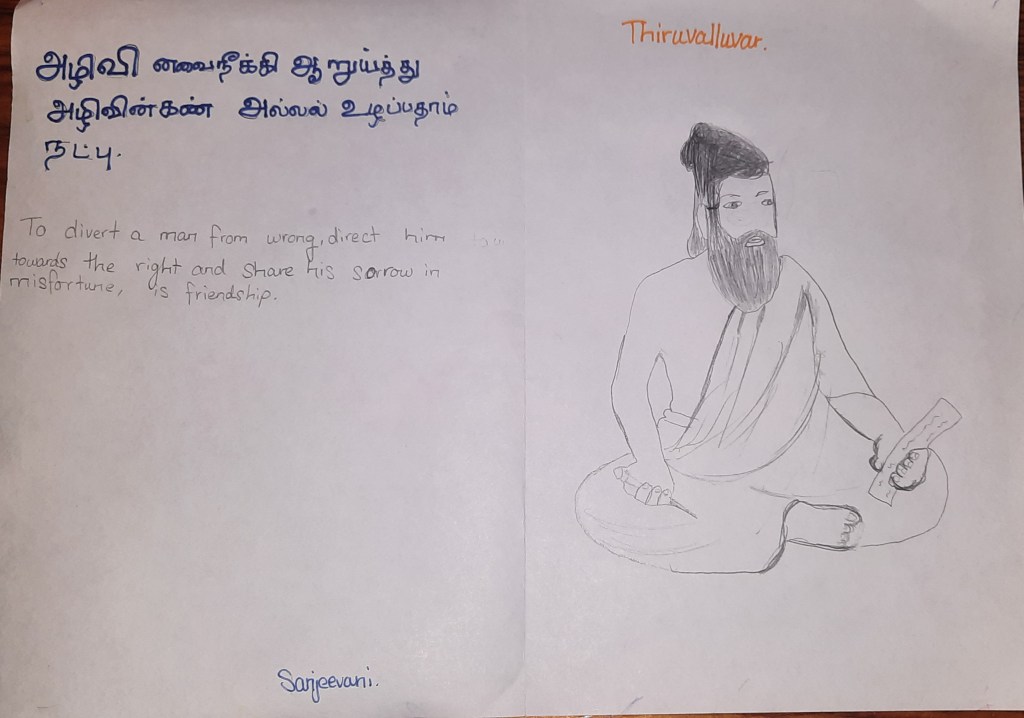 அழிவி னவைநீக்கி ஆறுய்த்து
அழிவின்கண் அல்லல் உழப்பதாம்
நட்பு.
To divert a man from wrong, direct him
towards the right and share his sorrow in
misfortune, is friendship.
Sanjeevani.
Thiruvalluvar.